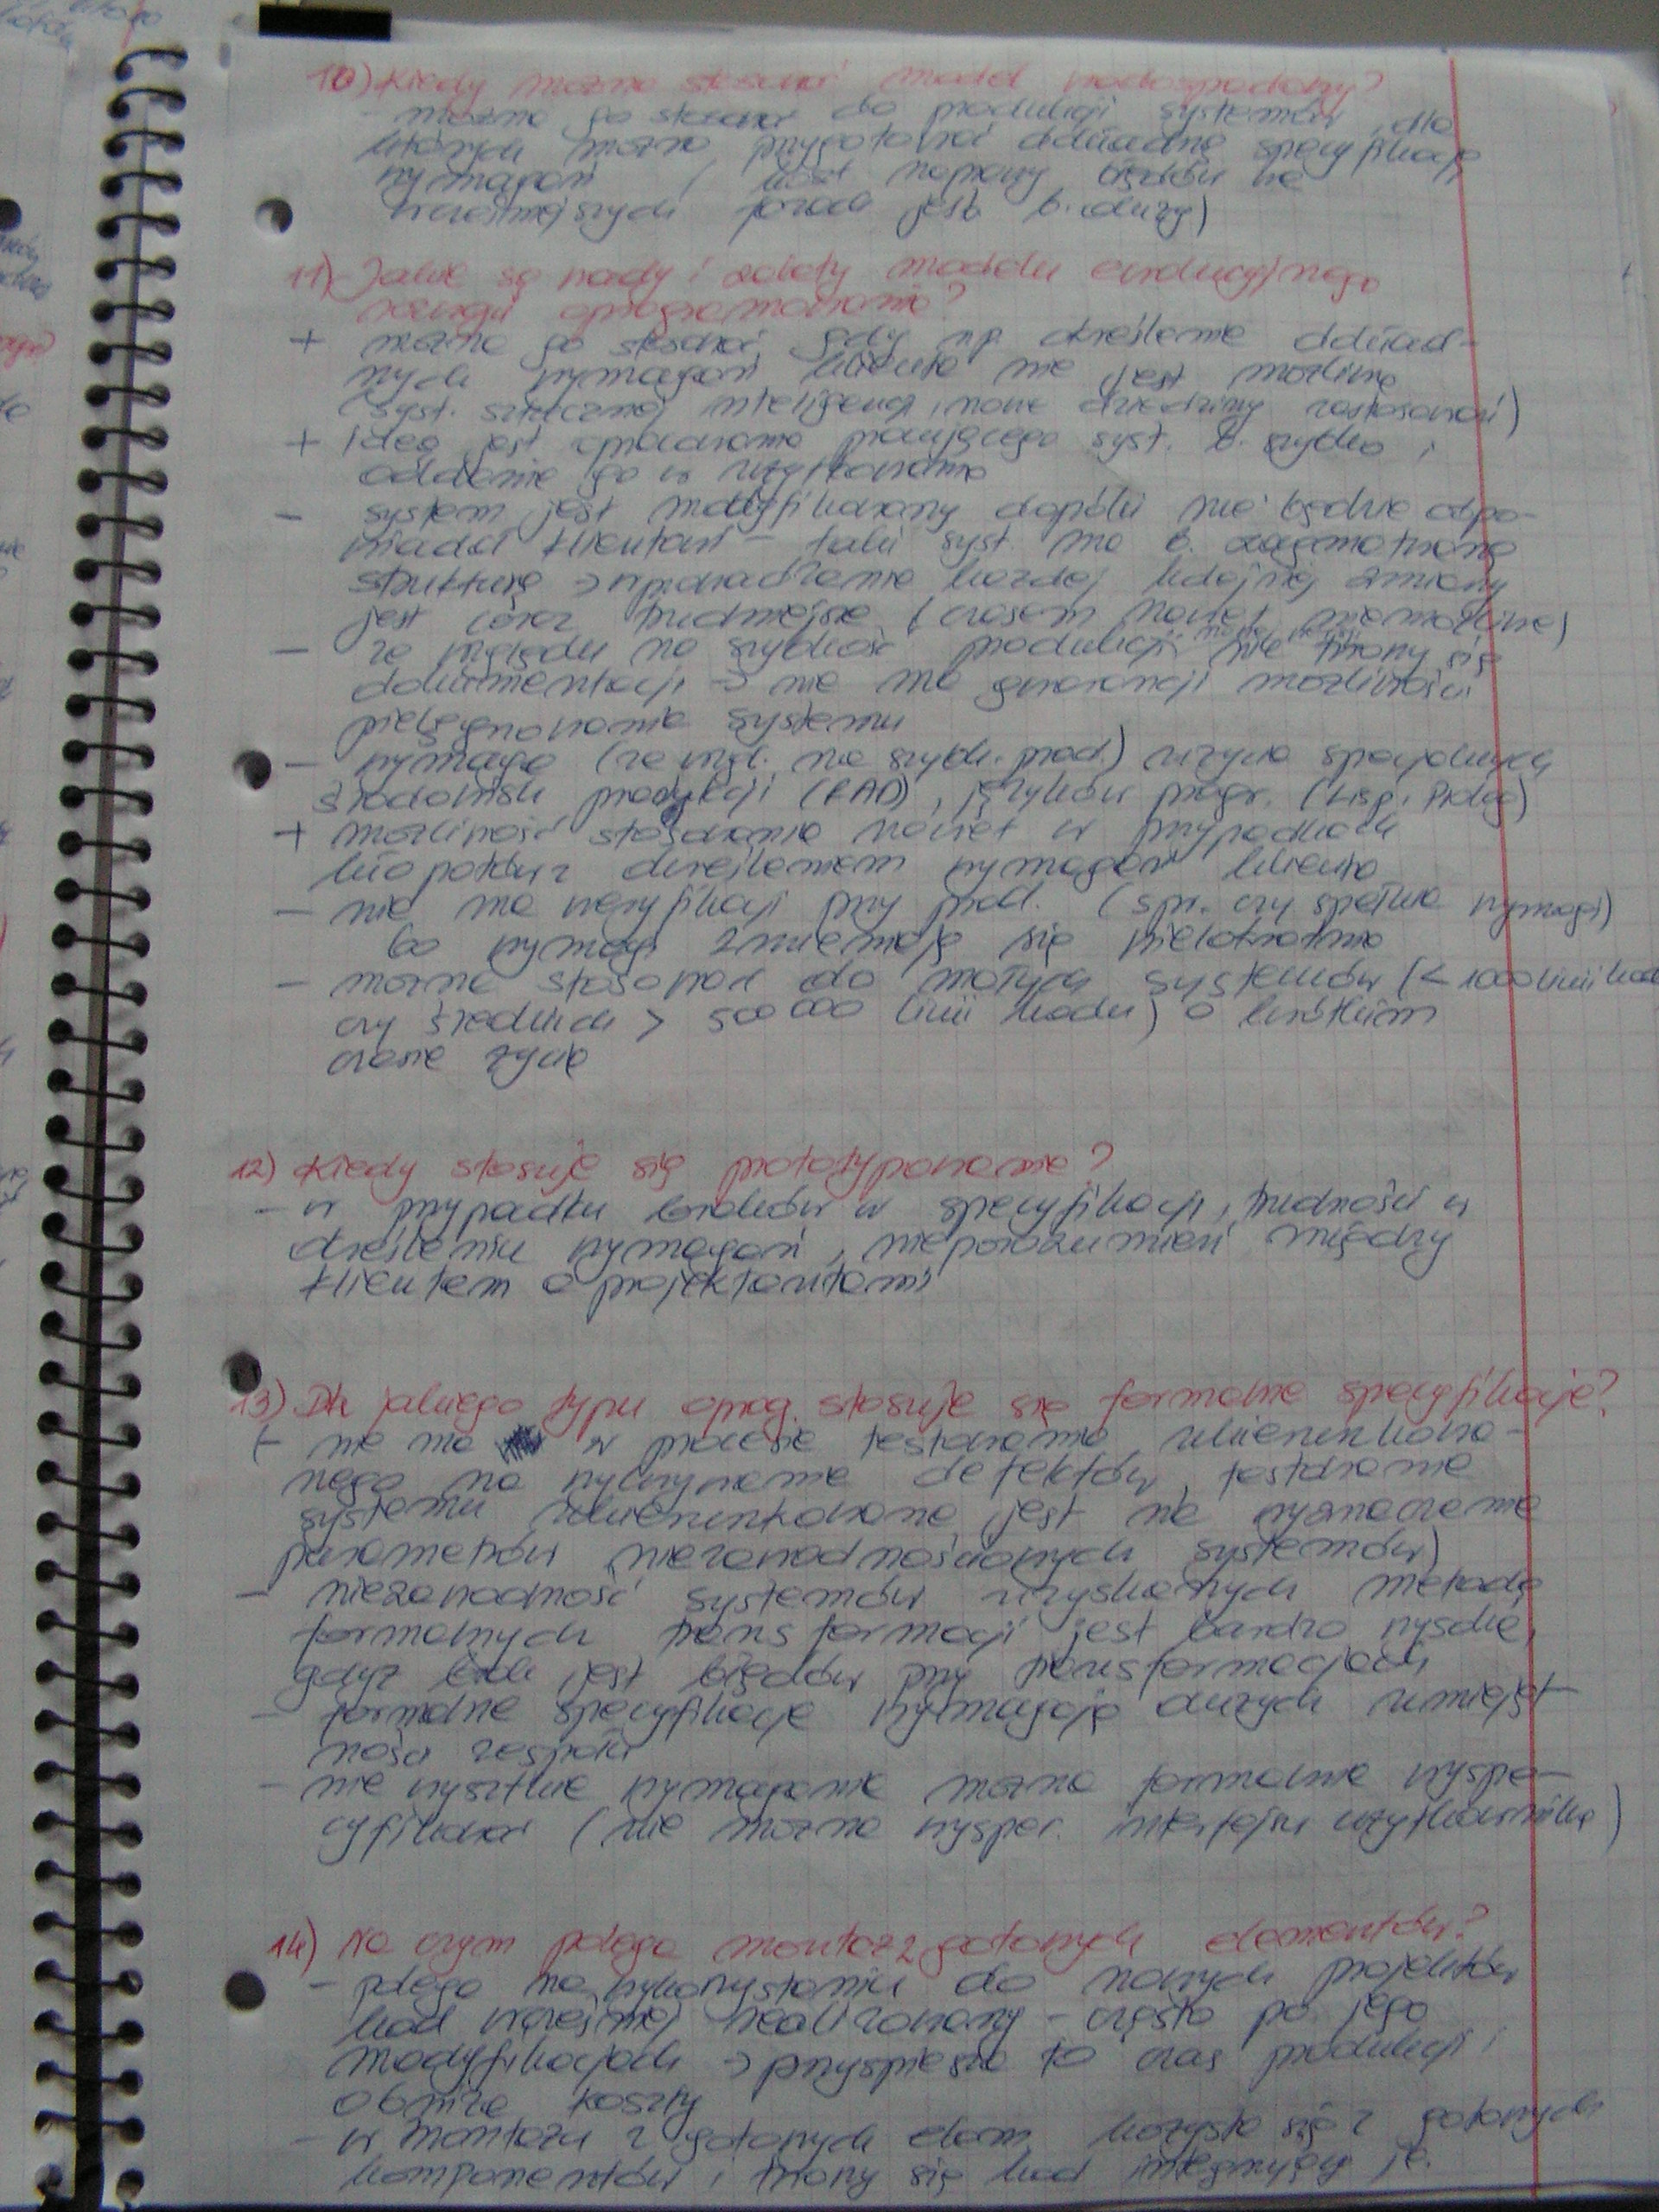 10) Kiedy można stosować model wodospadowy?
- można go stosować do produkcji systemów, dla
których można przygotować dokładną specyfikację
wymagań ( koszt naprawy błędów we
wcześniejszych fazach jest b. duży)
11) Jakie są wady i zalety modelu ewolucyjnego
rozwoju oprogramowania?
+ można go stosować, gdy np. określenie dokład-
nych wymagań klienta nie jest możliwe
(syst. sztucznej inteligencji, nowe dziedziny zastosowań)
+ Ideą jest opracowanie pracującego syst. b. szybko i
oddanie go w użytkowanie
- system jest modyfikowany dopóki nie będzie odpo-
wiadał klientowi - taki syst. ma b. zagmatwaną
strukturę → wprowadzanie każdej kolejnej zmiany
jest coraz trudniejsze (czasem nawet niemożliwe)
- ze względu na szybkość produkcji nie tworzy się
dokumentacji → nie ma gwarancji możliwości
pielęgnowania systemu
- wymaga (ze wzgl. na szybk. prod.) użycia specjalnych
środowisk produkcji (RAD), języków progr. (Lisp, Prolog)
+ możliwość stosowania nawet w przypadkach
kłopotów z określeniem wymagań klienta
- nie ma weryfikacji przy prod. (spr. czy spełnia wymogi)
bo wymogi zmieniają się wielokrotnie
- można stosować do małych systemów (< 1000 linii kod
czy średnich > 500 000 linii kodu) o krótkim
czasie życia
12) Kiedy stosuje się prototypowanie?
- w przypadku braków w specyfikacji, trudności w
określeniu wymagań, nieporozumień między
klientem a projektantami
13) Dla jakiego typu oprog. stosuje się formalne specyfikacje?
(- nie ma w procesie testowania ukierunkowa-
nego na wykrywanie defektów, testowanie
systemu ukierunkowane jest na wyznaczenie
parametrów niezawodnościowych systemów)
- niezawodność systemów uzyskanych metodą
formalnych transformacji jest bardzo wysoka,
gdyż brak jest błędów przy transformacjach
- formalne specyfikacje wymagają dużych umiejęt-
ności zespołu
- nie wszystkie wymagania można formalnie wyspe-
cyfikować (nie można wyspec. interfejsu użytkownika)
14) Na czym polega montaż z gotowych elementów?
- polega na wykorzystaniu do nowych projektów
kod wcześniej realizowany - często po jego
modyfikacjach → przyspiesza to czas produkcji i
obniża koszty
- w montażu z gotowych elem. korzysta się z gotowych
komponentów i tworzy się kod integrujący je.